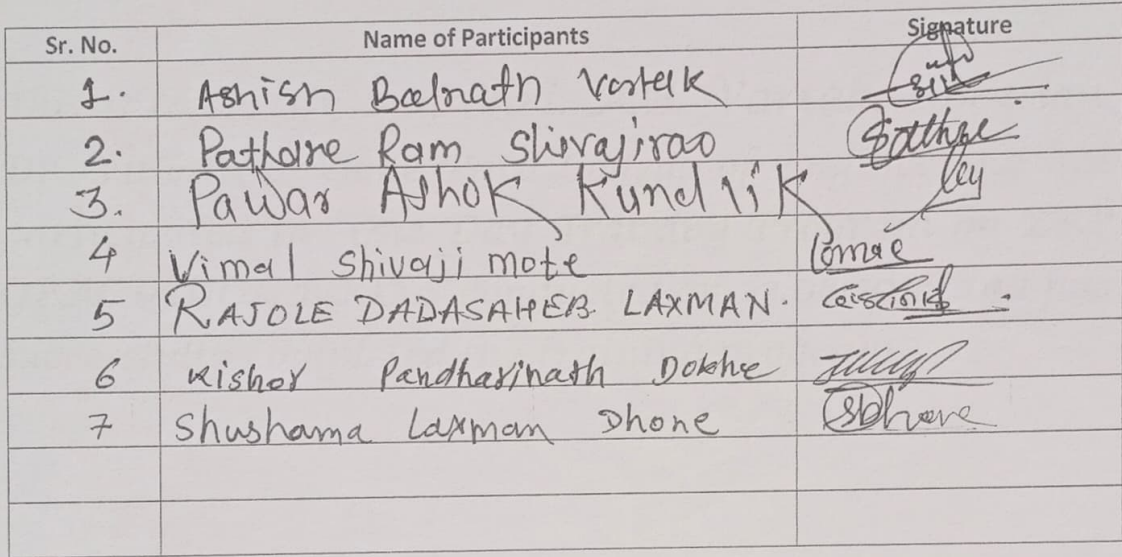 Sr. No. Name of Participants Signature
1. Ashish Balnath Vartak
2. Pathare Ram Shivajirao
3. Pawar Ashok Kundlik
4 Vimal Shivaji mote
5 RAJOLE DADASAHEB LAXMAN.
6 Kishor Pandharinath Dokhe
7 Shushama Laxman Dhone